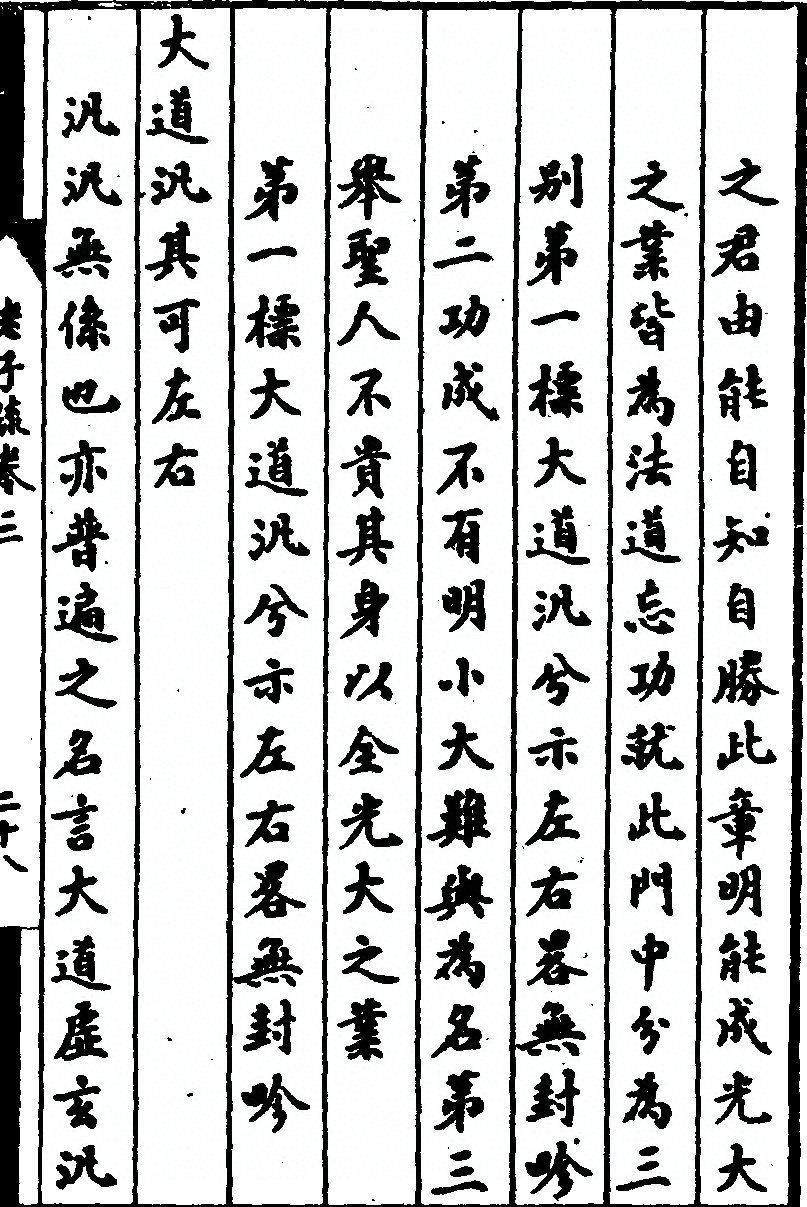 之君由能自知自勝此章明能成光大
之業皆為法道忘功就此門中分為三
别第一標大道汎兮示左右畧無封畛
第二功成不有明小大難與為名第三
舉聖人不貴其身以全光大之業
第一標大道汎兮示左右畧無封畛
大道汎其可左右
汎汎無係也亦普遍之名言大道虛玄汎
老子疏卷三
二十八